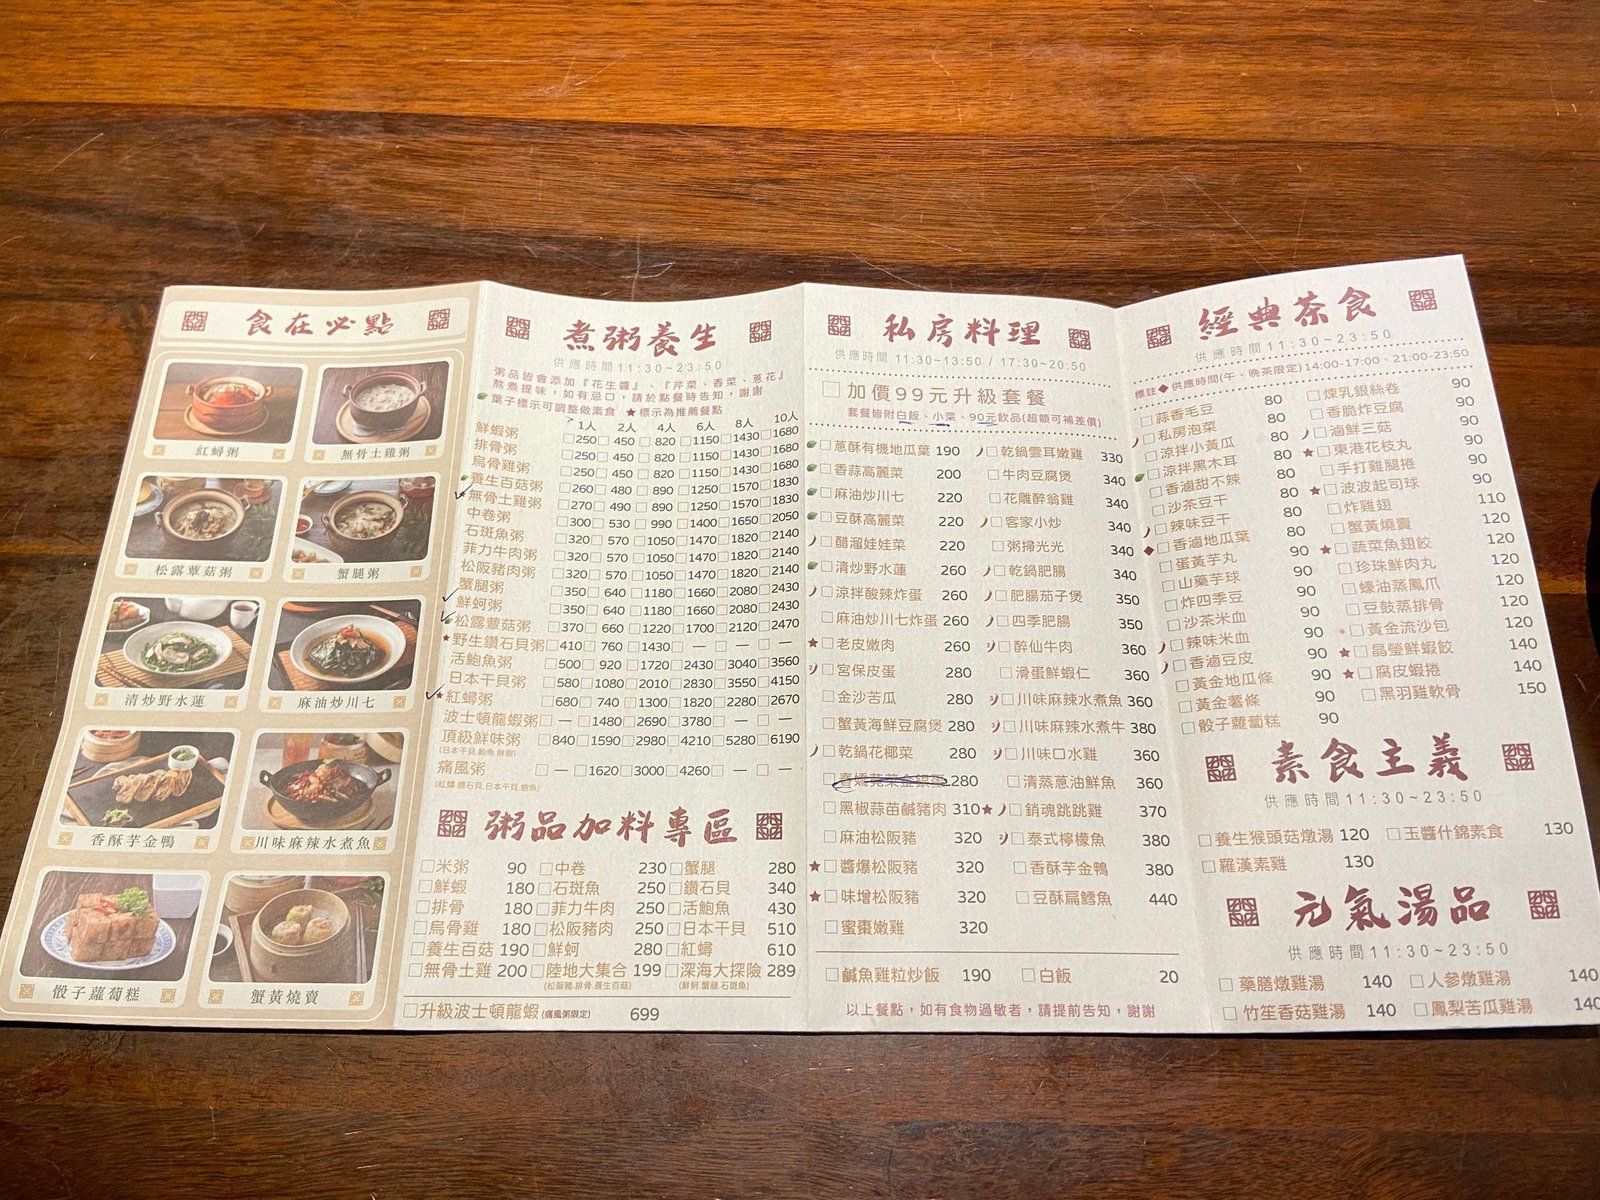 食在必點
紅蟳粥
無骨土雞粥
松露蕈菇粥
蟹腿粥
清炒野水蓮
麻油炒川七
香酥芋金鴨
川味麻辣水煮魚
骰子蘿蔔糕
蟹黃燒賣
煮粥養生
供應時間11:30~23:50
粥品皆會添加『花生醬』、『芹菜、香菜、蔥花』
熬煮提味,如有忌口,請於點餐時告知,謝謝
葉子標示可調整做素食 ★標示為推薦餐點
1人 2人 4人 6人 8人 10人
鮮蝦粥 □250□ 450 □ 820 □1150□1430□1680
排骨粥 □250□ 450 □ 820 □1150□1430□1680
烏骨雞粥 □250□ 450 □ 820 □1150□1430□1680
養生百菇粥 □260□ 480 □ 890 □1250□1570□1830
無骨土雞粥 □270□ 490 □ 890 □1250□1570□1830
中卷粥 □300□ 530 □ 990 □1400□1650□2050
石斑魚粥 □320□ 570 □1050□1470□1820□2140
菲力牛肉粥 □320□ 570 □1050□1470□1820□2140
松阪豬肉粥 □320□ 570 □1050□1470□1820□2140
蟹腿粥 □350□ 640 □1180□1660□2080□2430
鮮蚵粥 □350□ 640 □1180□1660□2080□2430
松露蕈菇粥 □370□ 660 □1220□1700□2120□2470
★野生鑽石貝粥□410□ 760 □1430□ — □ — □ —
活鮑魚粥 □500□ 920 □1720□2430□3040□3560
日本干貝粥 □580□1080□2010□2830□3550□4150
★紅蟳粥 □680□ 740 □1300□1820□2280□2670
波士頓龍蝦粥□ — □1480□2690□3780□ — □ —
頂級鮮味粥 □840□1590□2980□4210□5280□6190
(日本干貝.鮑魚.鮮蝦)
痛風粥 □ — □1620□3000□4260□ — □ —
(紅蟳.鑽石貝.日本干貝.鮑魚)
粥品加料專區
□米粥 90 □中卷 230 □蟹腿 280
□鮮蝦 180 □石斑魚 250 □鑽石貝 340
□排骨 180 □菲力牛肉 250 □活鮑魚 430
□烏骨雞 180 □松阪豬肉 250 □日本干貝 510
□養生百菇 190 □鮮蚵 280 □紅蟳 610
□無骨土雞 200 □陸地大集合 199 □深海大探險 289
(松阪豬.排骨.養生百菇) (鮮蚵.蟹腿.石斑魚)
□升級波士頓龍蝦(痛風粥限定) 699
私房料理
供應時間 11:30~13:50 / 17:30~20:50
□加價99元升級套餐
套餐皆附白飯、小菜、90元飲品(超額可補差價)
□蔥酥有機地瓜葉 190 □乾鍋雲耳嫩雞 330
□香蒜高麗菜 200 □牛肉豆腐煲 340
□麻油炒川七 220 □花雕醉翁雞 340
□豆酥高麗菜 220 □客家小炒 340
□醋溜娃娃菜 220 □粥掃光光 340
□清炒野水蓮 260 □乾鍋肥腸 340
□涼拌酸辣炸蛋 260 □肥腸茄子煲 350
□麻油炒川七炸蛋 260 □四季肥腸 350
★□老皮嫩肉 260 □醉仙牛肉 360
□宮保皮蛋 280 □滑蛋鮮蝦仁 360
□金沙苦瓜 280 □川味麻辣水煮魚 360
□蟹黃海鮮豆腐煲 280 □川味麻辣水煮牛 380
□乾鍋花椰菜 280 □川味口水雞 360
280 □清蒸蔥油鮮魚 360
□黑椒蒜苗鹹豬肉 310 ★□銷魂跳跳雞 370
□麻油松阪豬 320 □泰式檸檬魚 380
★□醬爆松阪豬 320 □香酥芋金鴨 380
★□味增松阪豬 320 □豆酥扁鱈魚 440
□蜜棗嫩雞 320
□鹹魚雞粒炒飯 190 □白飯 20
以上餐點,如有食物過敏者,請提前告知,謝謝
經典茶食
供應時間11:30~23:50
標註◆供應時間(午、晚茶限定)14:00-17:00、21:00-23:50
□蒜香毛豆 80 □煉乳銀絲卷 90
□私房泡菜 80 □香脆炸豆腐 90
□涼拌小黃瓜 80 □滷鮮三菇 90
□涼拌黑木耳 80 ★□東港花枝丸 90
□香滷甜不辣 80 □手打雞腿捲 90
□沙茶豆干 80 ★□波波起司球 90
□辣味豆干 80 □炸雞翅 110
◆□香滷地瓜葉 90 □蟹黃燒賣 120
□蛋黃芋丸 90 ★□蔬菜魚翅餃 120
□山藥芋球 90 □珍珠鮮肉丸 120
□炸四季豆 90 □蠔油蒸鳳爪 120
□沙茶米血 90 □豆鼓蒸排骨 120
□辣味米血 90 □黃金流沙包 120
□香滷豆皮 90 ★□晶瑩鮮蝦餃 140
□黃金地瓜條 90 ★□腐皮蝦捲 140
□黃金薯條 90 □黑羽雞軟骨 150
□骰子蘿蔔糕 90
素食主義
供應時間11:30~23:50
□養生猴頭菇燉湯 120 □玉醬什錦素食 130
□羅漢素雞 130
元氣湯品
供應時間11:30~23:50
□藥膳燉雞湯 140 □人參燉雞湯 140
□竹笙香菇雞湯 140 □鳳梨苦瓜雞湯 140